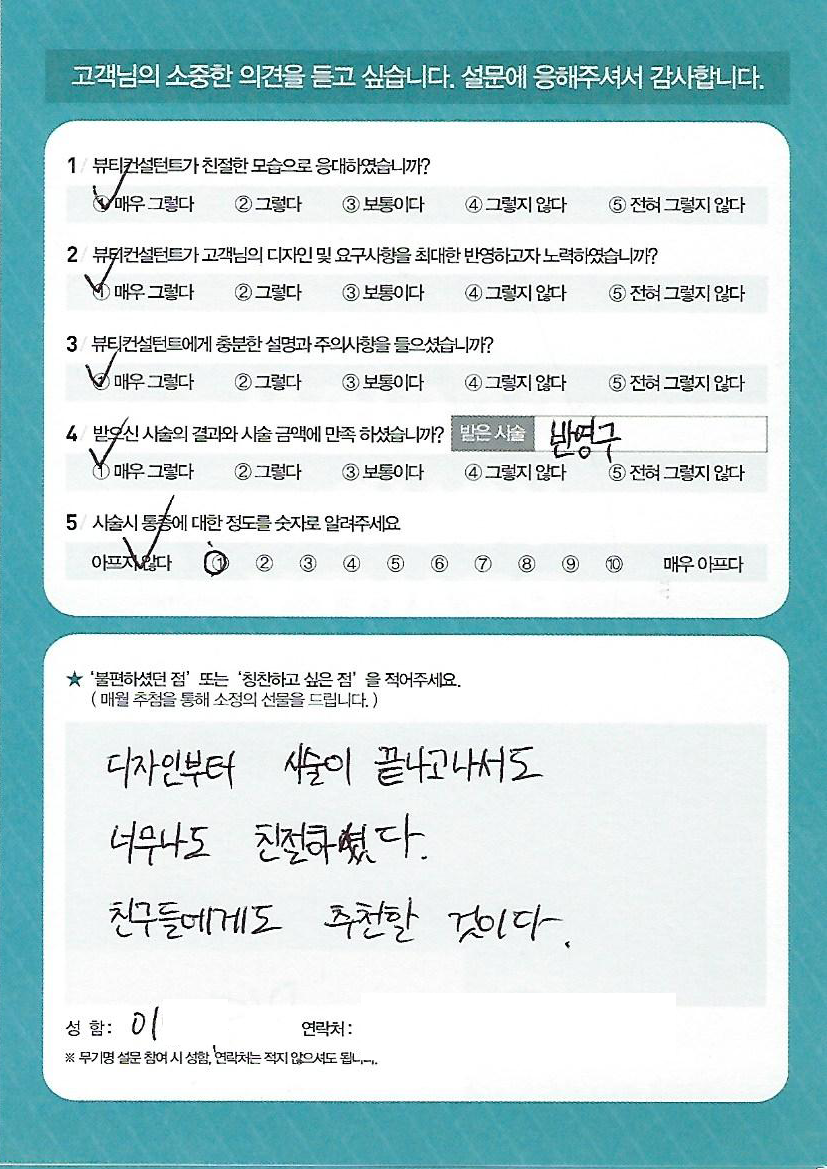 고객님의 소중한 의견을 듣고 싶습니다. 설문에 응해주셔서 감사합니다.
1 / 뷰티컨설턴트가 친절한 모습으로 응대하였습니까?
① 매우 그렇다 ② 그렇다 ③ 보통이다 ④ 그렇지 않다 ⑤ 전혀 그렇지 않다
2 / 뷰티컨설턴트가 고객님의 디자인 및 요구사항을 최대한 반영하고자 노력하였습니까?
① 매우 그렇다 ② 그렇다 ③ 보통이다 ④ 그렇지 않다 ⑤ 전혀 그렇지 않다
3 / 뷰티컨설턴트에게 충분한 설명과 주의사항을 들으셨습니까?
① 매우 그렇다 ② 그렇다 ③ 보통이다 ④ 그렇지 않다 ⑤ 전혀 그렇지 않다
4 / 받으신 시술의 결과와 시술 금액에 만족 하셨습니까? 받은 시술 반영구
① 매우 그렇다 ② 그렇다 ③ 보통이다 ④ 그렇지 않다 ⑤ 전혀 그렇지 않다
5 / 시술시 통증에 대한 정도를 숫자로 알려주세요
아프지 않다 ① ② ③ ④ ⑤ ⑥ ⑦ ⑧ ⑨ ⑩ 매우 아프다
★ '불편하셨던 점' 또는 '칭찬하고 싶은 점' 을 적어주세요.
( 매월 추첨을 통해 소정의 선물을 드립니다. )
디자인부터 시술이 끝나고나서도
너무나도 친절하였다.
친구들에게도 추천할 것이다.
성 함 : 이 연락처 :
※ 무기명 설문 참여 시 성함, 연락처는 적지 않으셔도 됩니다.